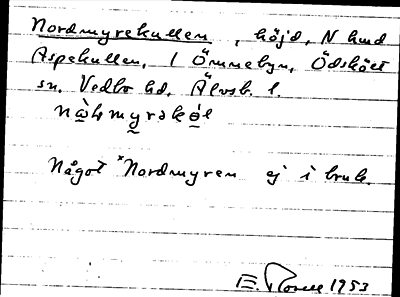 Nordmyrekullen, höjd, N hmd
Aspekullen, 1 Ömmebyn, Ödskölt
sn. Vedbo hd. Älvsb. l.
Något *Nordmyren ej i bruk.
1953